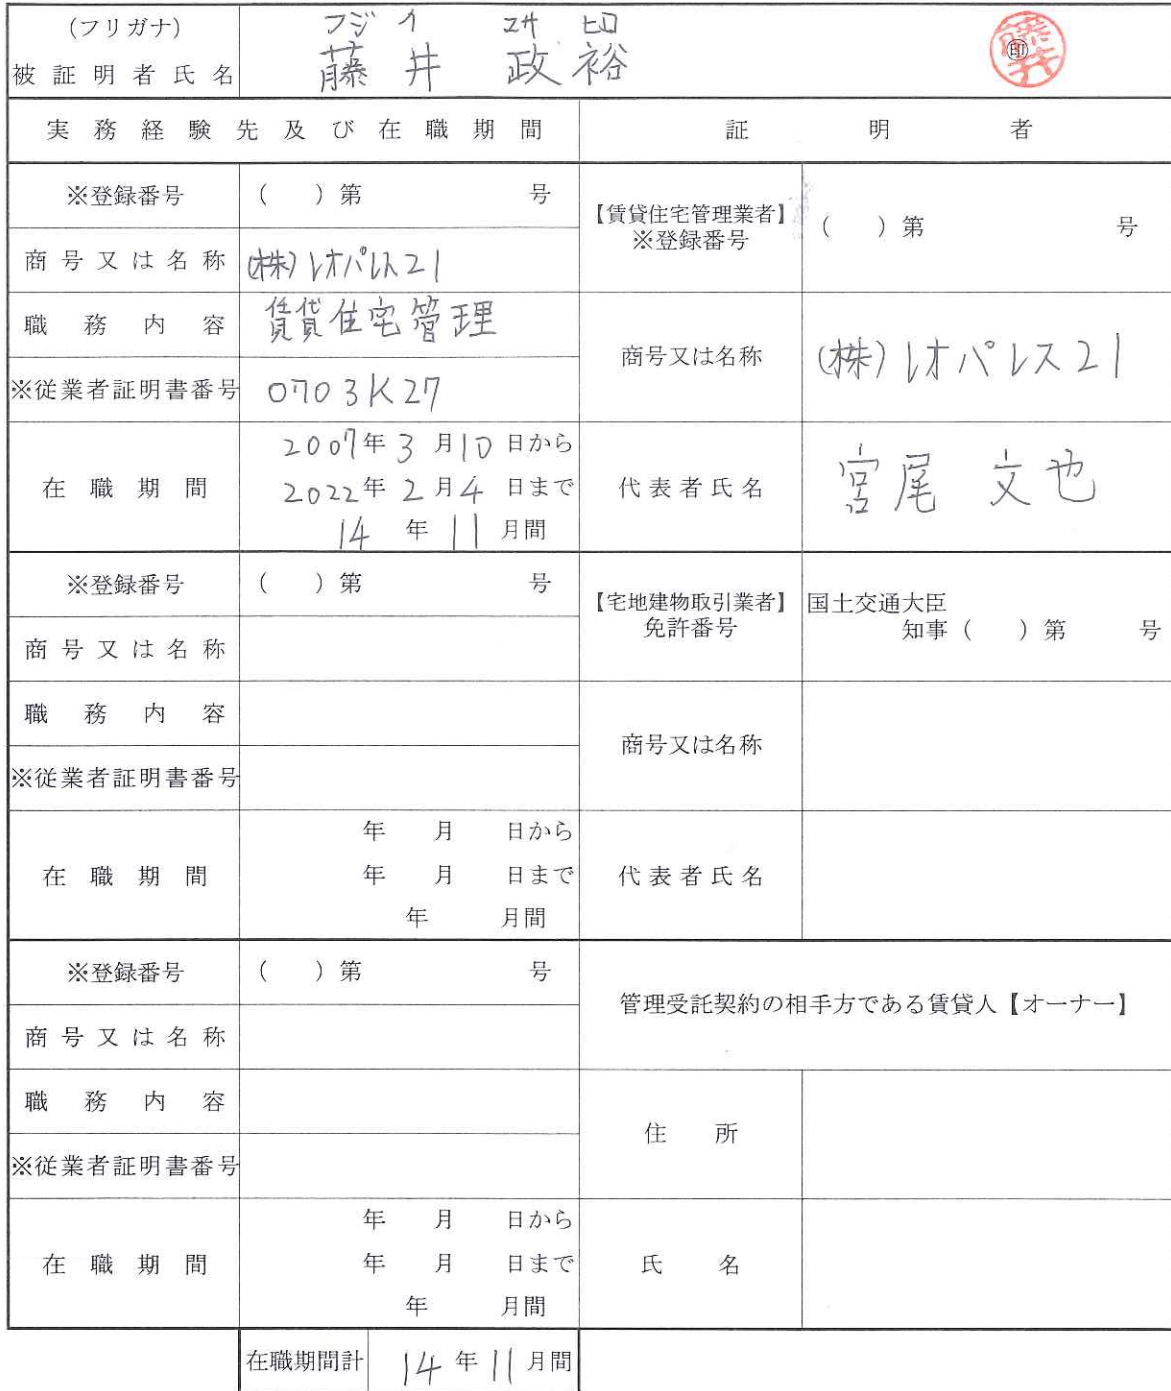 (フリガナ) フジイ マサヒロ
被証明者氏名 藤井 政裕 ㊞ 藤井
実務経験先及び在職期間 証明者
※登録番号 ( )第 号 【賃貸住宅管理業者】※登録番号 ( )第 号
商号又は名称 (株)レオパレス21
職務内容 賃貸住宅管理 商号又は名称 (株)レオパレス21
※従業者証明書番号 0703K27
在職期間 2007年3月10日から 代表者氏名 宮尾 文也
2022年2月4日まで
14年11月間
※登録番号 ( )第 号 【宅地建物取引業者】免許番号 国土交通大臣
知事( )第 号
商号又は名称
職務内容 商号又は名称
※従業者証明書番号
在職期間 年 月 日から 代表者氏名
年 月 日まで
年 月間
※登録番号 ( )第 号 管理受託契約の相手方である賃貸人【オーナー】
商号又は名称
職務内容 住所
※従業者証明書番号
在職期間 年 月 日から 氏名
年 月 日まで
年 月間
在職期間計 14年11月間